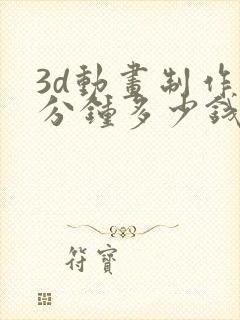 3d動畫制作
分鍾多少錢
符寶